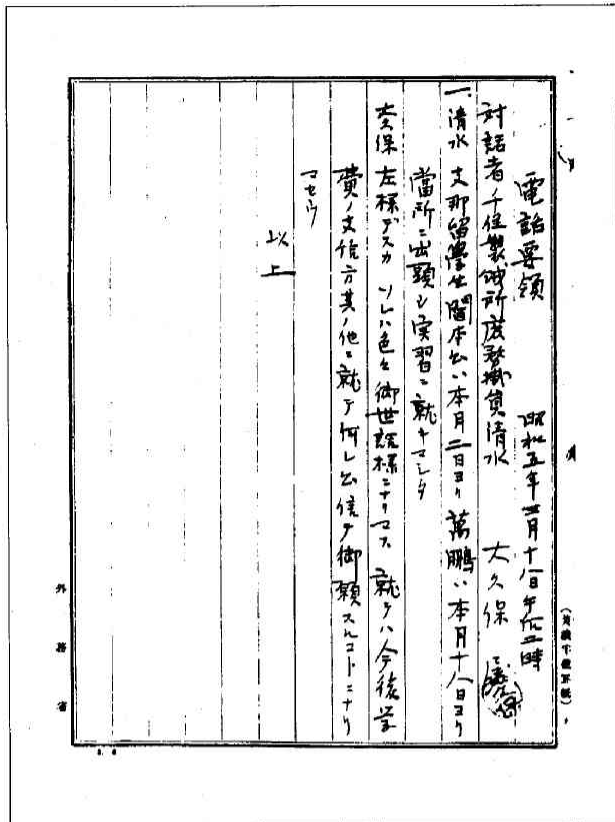 電話要領　昭和五年三月十八日午后二時
対話者 千住製絨所庶務掛員清水　大久保
一、清水 支那留學生關本公ハ本月二日ヨリ 萬鵬ハ本月十八日ヨリ
當所ニ出頭シ実習ニ就キマシタ
大久保 左様デスカ ソレハ色々御世話様ニナリマス 就テハ今後学
費ノ支給方其ノ他ニ就テ何レ公信ヲ御願スルコトニナリ
マセウ
以上
外務省